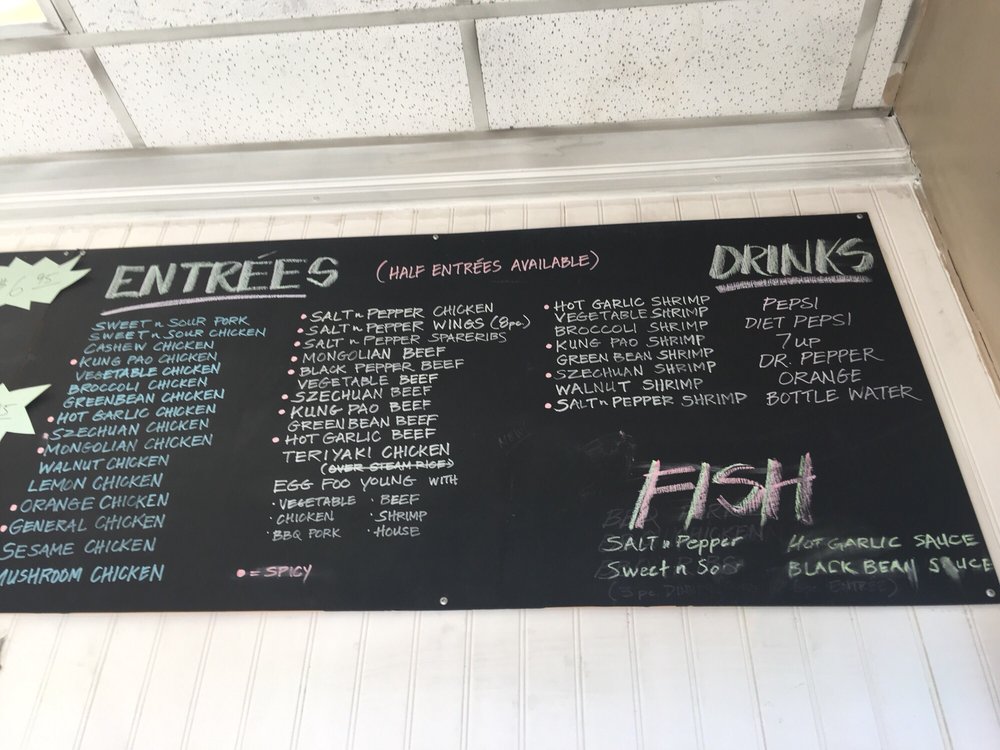 $6.95
ENTRÉES
(HALF ENTRÉES AVAILABLE)
SWEET n SOUR PORK
SWEET n SOUR CHICKEN
CASHEW CHICKEN
• KUNG PAO CHICKEN
VEGETABLE CHICKEN
BROCCOLI CHICKEN
GREENBEAN CHICKEN
• HOT GARLIC CHICKEN
• SZECHUAN CHICKEN
• MONGOLIAN CHICKEN
WALNUT CHICKEN
LEMON CHICKEN
• ORANGE CHICKEN
• GENERAL CHICKEN
SESAME CHICKEN
MUSHROOM CHICKEN
• SALT n PEPPER CHICKEN
• SALT n PEPPER WINGS (8pc)
• SALT n PEPPER SPARERIBS
• MONGOLIAN BEEF
• BLACK PEPPER BEEF
VEGETABLE BEEF
• SZECHUAN BEEF
• KUNG PAO BEEF
GREENBEAN BEEF
• HOT GARLIC BEEF
TERIYAKI CHICKEN
(OVER STEAM RICE)
EGG FOO YOUNG WITH
• VEGETABLE • BEEF
• CHICKEN • SHRIMP
• BBQ PORK • HOUSE
• = SPICY
• HOT GARLIC SHRIMP
VEGETABLE SHRIMP
BROCCOLI SHRIMP
• KUNG PAO SHRIMP
GREEN BEAN SHRIMP
• SZECHUAN SHRIMP
WALNUT SHRIMP
• SALT n PEPPER SHRIMP
DRINKS
PEPSI
DIET PEPSI
7 UP
DR. PEPPER
ORANGE
BOTTLE WATER
FISH
SALT n Pepper
Sweet n So
HOT GARLIC SAUCE
BLACK BEAN SAUCE